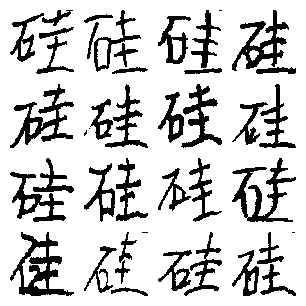 硅硅硅硅
硅硅硅硅
硅硅硅硅
硅硅硅硅